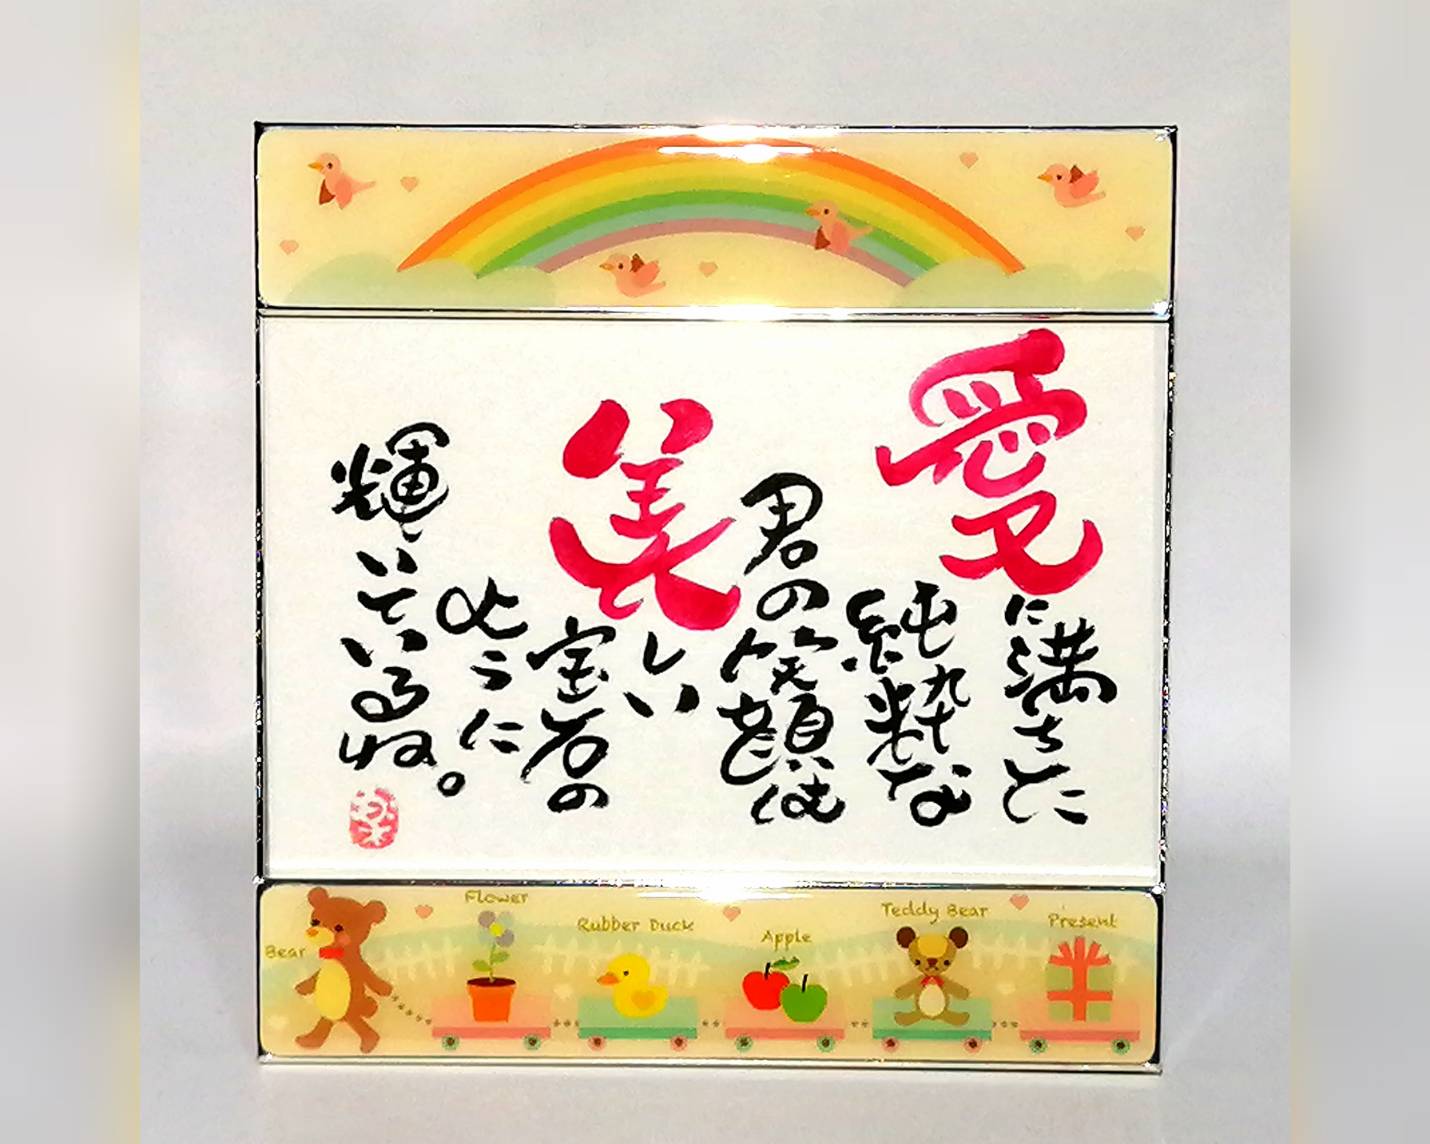 愛に満ちた
純粋な
君の笑顔は
美しい
宝石の
ように
輝いているね。
Bear
Flower
Rubber Duck
Apple
Teddy Bear
Present